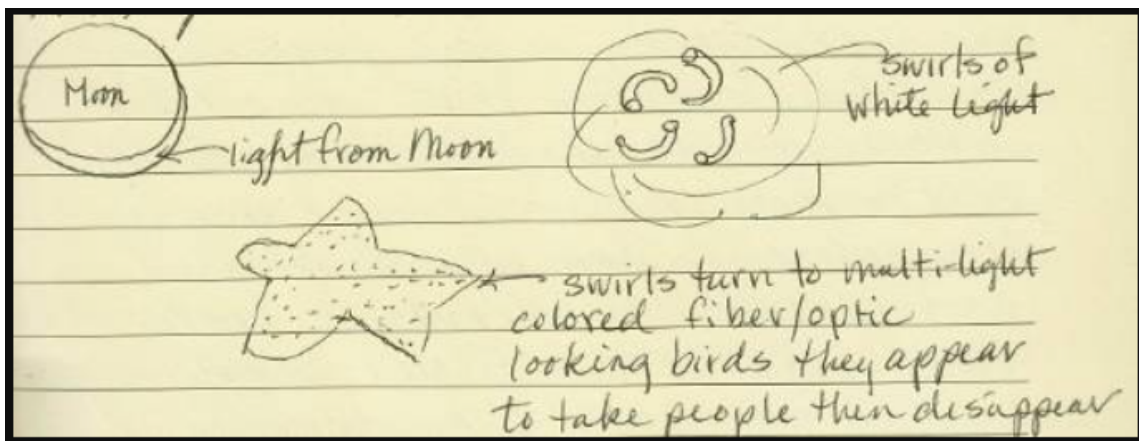 Moon
light from Moon
swirls of
white light
swirls turn to multi-light
colored fiber/optic
looking birds they appear
to take people then disappear